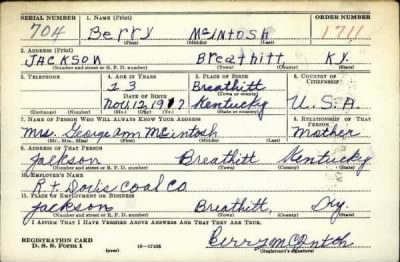 SERIAL NUMBER 1. NAME (Print) ORDER NUMBER
704 Berry McIntosh 1711
(First) (Middle) (Last)
2. ADDRESS (Print)
JACKSON Breathitt KY.
(Number and street or R. F. D. number) (Town) (County) (State)
3. TELEPHONE 4. AGE IN YEARS 5. PLACE OF BIRTH 6. COUNTRY OF CITIZENSHIP
23 Breathitt
DATE OF BIRTH (Town or county)
Nov, 12, 1917 Kentucky U.S.A.
(Exchange) (Number) (Mo.) (Day) (Yr.) (State or country)
7. NAME OF PERSON WHO WILL ALWAYS KNOW YOUR ADDRESS 8. RELATIONSHIP OF THAT PERSON
Mrs. George Ann McIntosh Mother
(Mr., Mrs., Miss) (First) (Middle) (Last)
9. ADDRESS OF THAT PERSON
Jackson Breathitt Kentucky
(Number and street or R. F. D. number) (Town) (County) (State)
10. EMPLOYER'S NAME
R. T. Coal Co.
11. PLACE OF EMPLOYMENT OR BUSINESS
Jackson Breathitt, Ky.
(Number and street or R. F. D. number) (Town) (County) (State)
I AFFIRM THAT I HAVE VERIFIED ABOVE ANSWERS AND THAT THEY ARE TRUE.
REGISTRATION CARD
D. S. S. Form 1 (over) 16-17105 Berry McIntosh
(Registrant's signature)